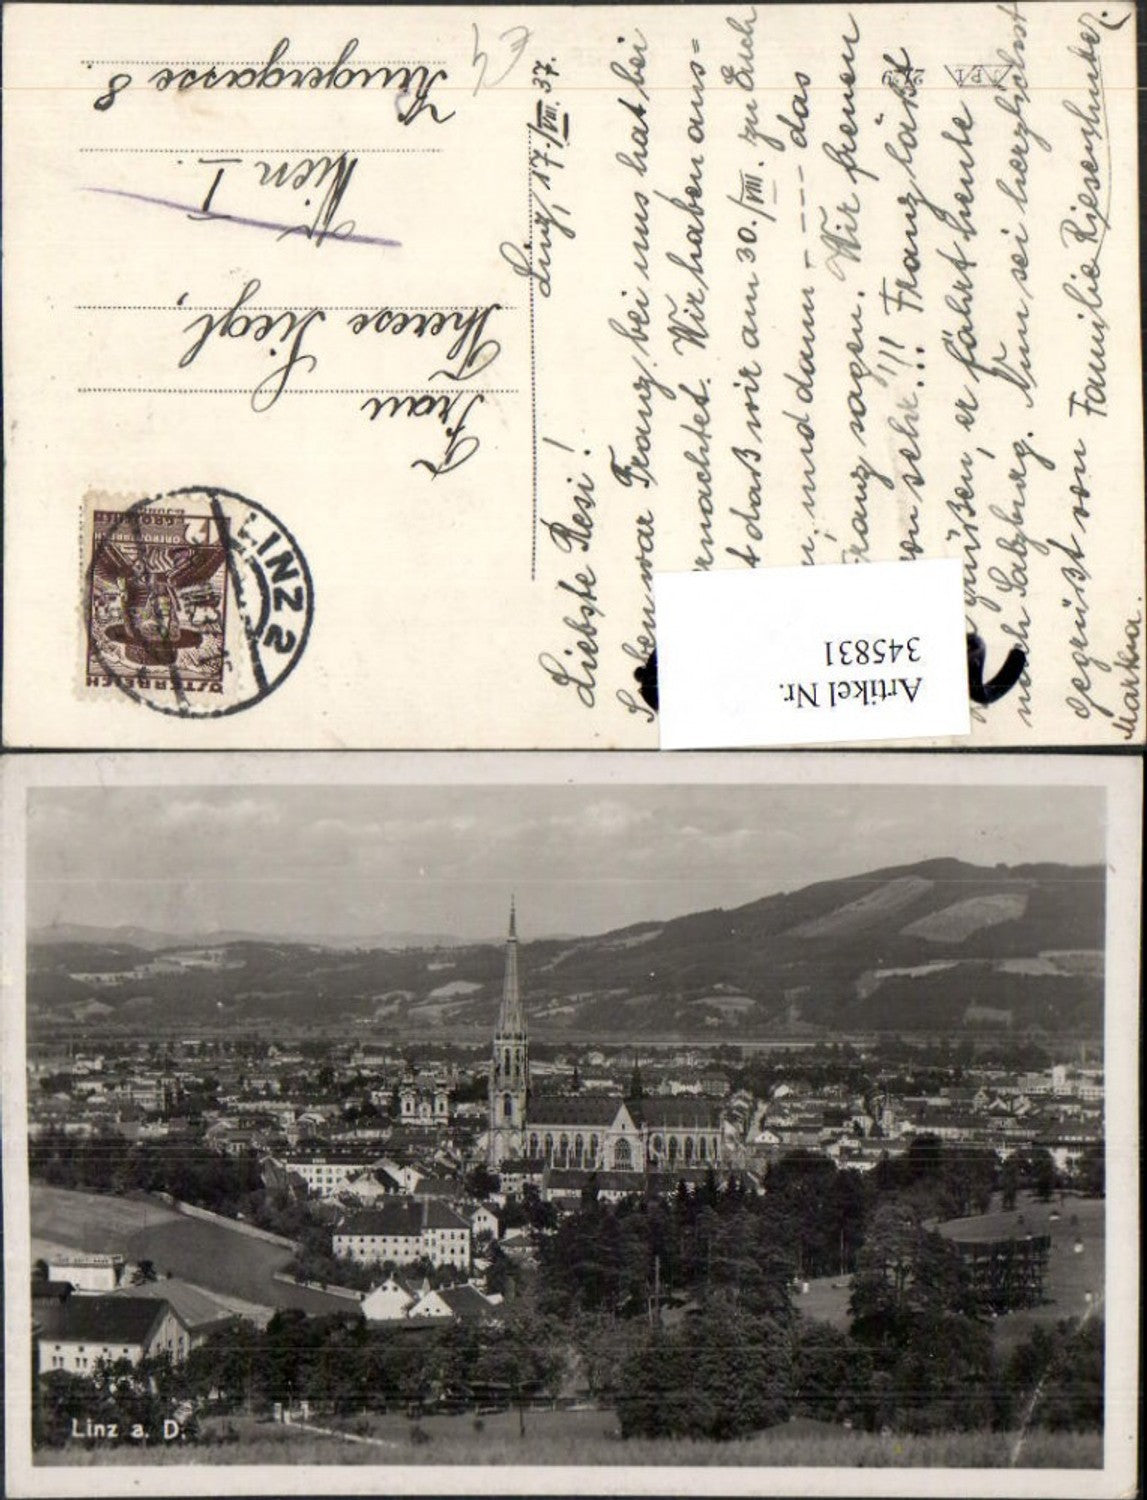 Linz, 17./VIII. 37.
Liebste Resi!
Soeben war Franz bei uns hat bei
ernachtet. Wir haben aus=
t daß wir am 30./VIII. zu Euch
n, und dann - - - - das
Franz sagen. Wir freuen
von sehr!!! Franz läßt
grüßen, er fährt heute
noch Salzburg. Nun sei herzlichst
gegrüßt von Familie Riesenhuber.
Martha.
Frau
Therese Siegl,
Wien I.
Singergasse 8.
ÖSTERREICH
GROSCHEN
LINZ 2
€ 4
Artikel Nr.
345831
Linz a. D.